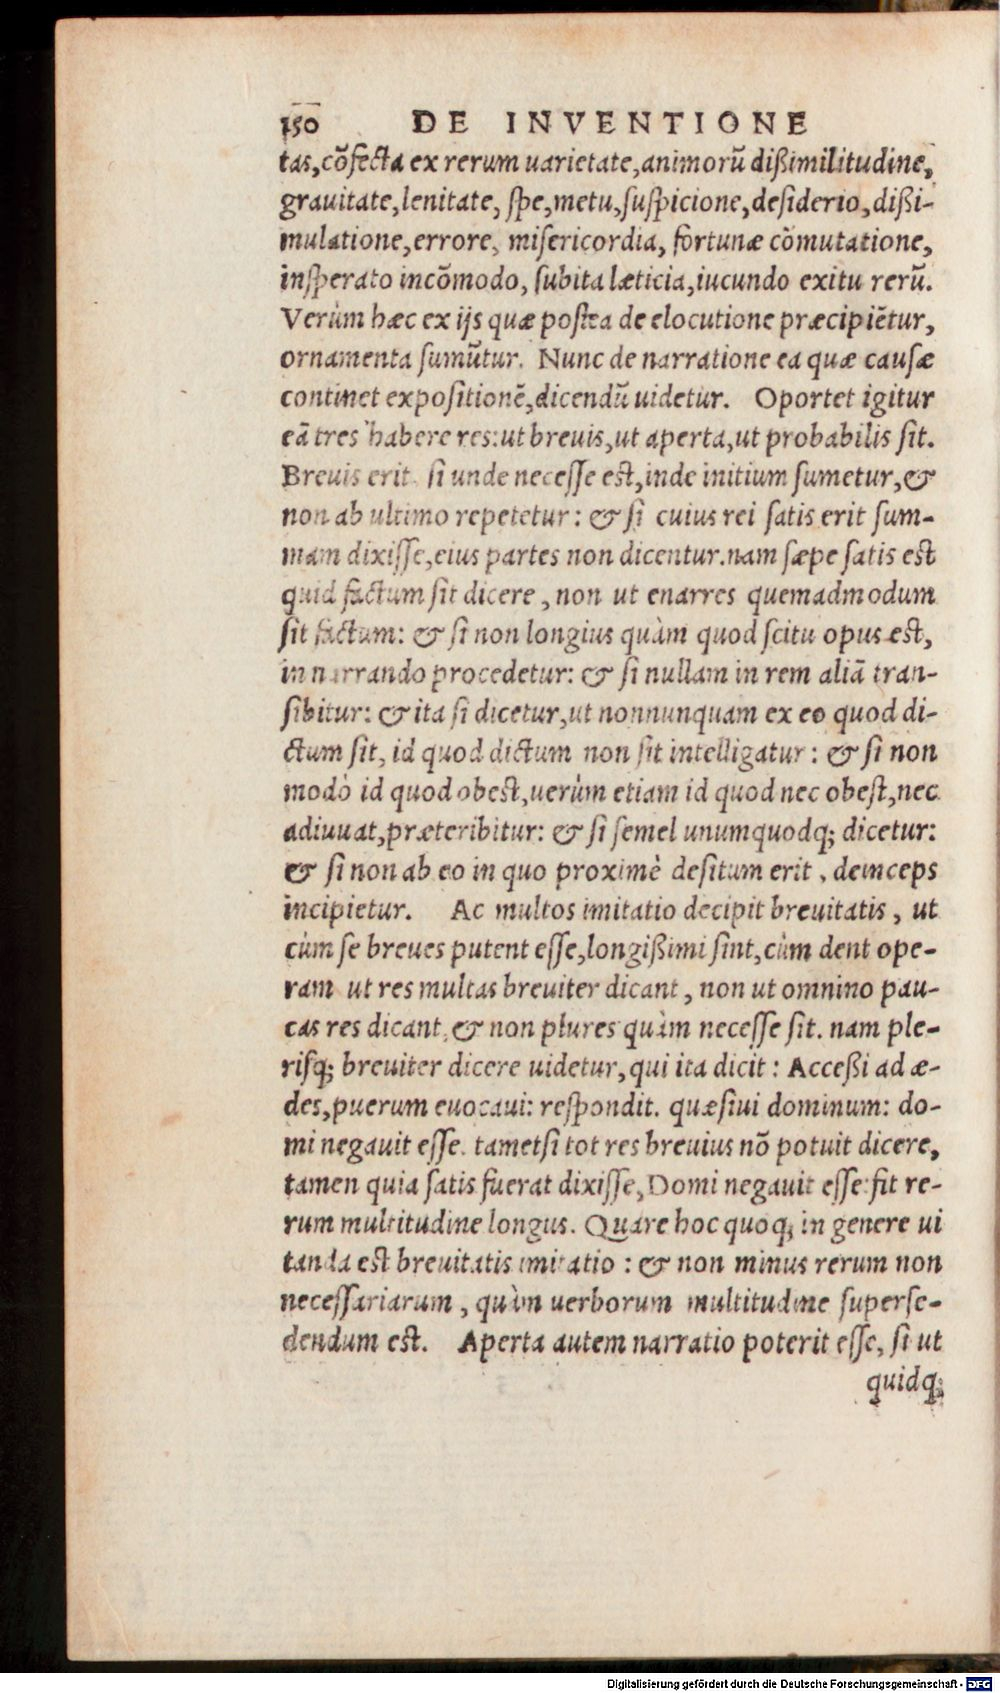 150 DE INVENTIONE
tas, cõfecta ex rerum uarietate, animorũ dißimilitudine,
grauitate, lenitate, spe, metu, suspicione, desiderio, dißi-
mulatione, errore, misericordia, fortunæ cõmutatione,
insperato incõmodo, subita læticia, iucundo exitu rerũ.
Verùm hæc ex ijs quæ postea de elocutione præcipiẽtur,
ornamenta sumũtur. Nunc de narratione ea quæ causæ
continet expositionẽ, dicendũ uidetur. Oportet igitur
eã tres habere res: ut breuis, ut aperta, ut probabilis sit.
Breuis erit, si unde necesse est, inde initium sumetur, &
non ab ultimo repetetur: & si cuius rei satis erit sum-
mam dixisse, eius partes non dicentur. nam sæpe satis est
quid factum sit dicere, non ut enarres quemadmodum
sit factum: & si non longius quàm quod scitu opus est,
in narrando procedetur: & si nullam in rem aliã tran-
sibitur: & ita si dicetur, ut nonnunquam ex eo quod di-
ctum sit, id quod dictum non sit intelligatur: & si non
modò id quod obest, uerùm etiam id quod nec obest, nec
adiuuat, præteribitur: & si semel unumquodq; dicetur:
& si non ab eo in quo proximè desitum erit, deinceps
incipietur. Ac multos imitatio decipit breuitatis, ut
cùm se breues putent esse, longißimi sint, cùm dent ope-
ram ut res multas breuiter dicant, non ut omnino pau-
cas res dicant, & non plures quàm necesse sit. nam ple-
risq; breuiter dicere uidetur, qui ita dicit: Acceßi ad æ-
des, puerum euocaui: respondit. quæsiui dominum: do-
mi negauit esse. tametsi tot res breuius nõ potuit dicere,
tamen quia satis fuerat dixisse, Domi negauit esse: fit re-
rum multitudine longus. Quare hoc quoq; in genere ui
tanda est breuitatis imitatio: & non minus rerum non
necessariarum, quàm uerborum multitudine superse-
dendum est. Aperta autem narratio poterit esse, si ut
quidq;
Digitalisierung gefördert durch die Deutsche Forschungsgemeinschaft - DFG